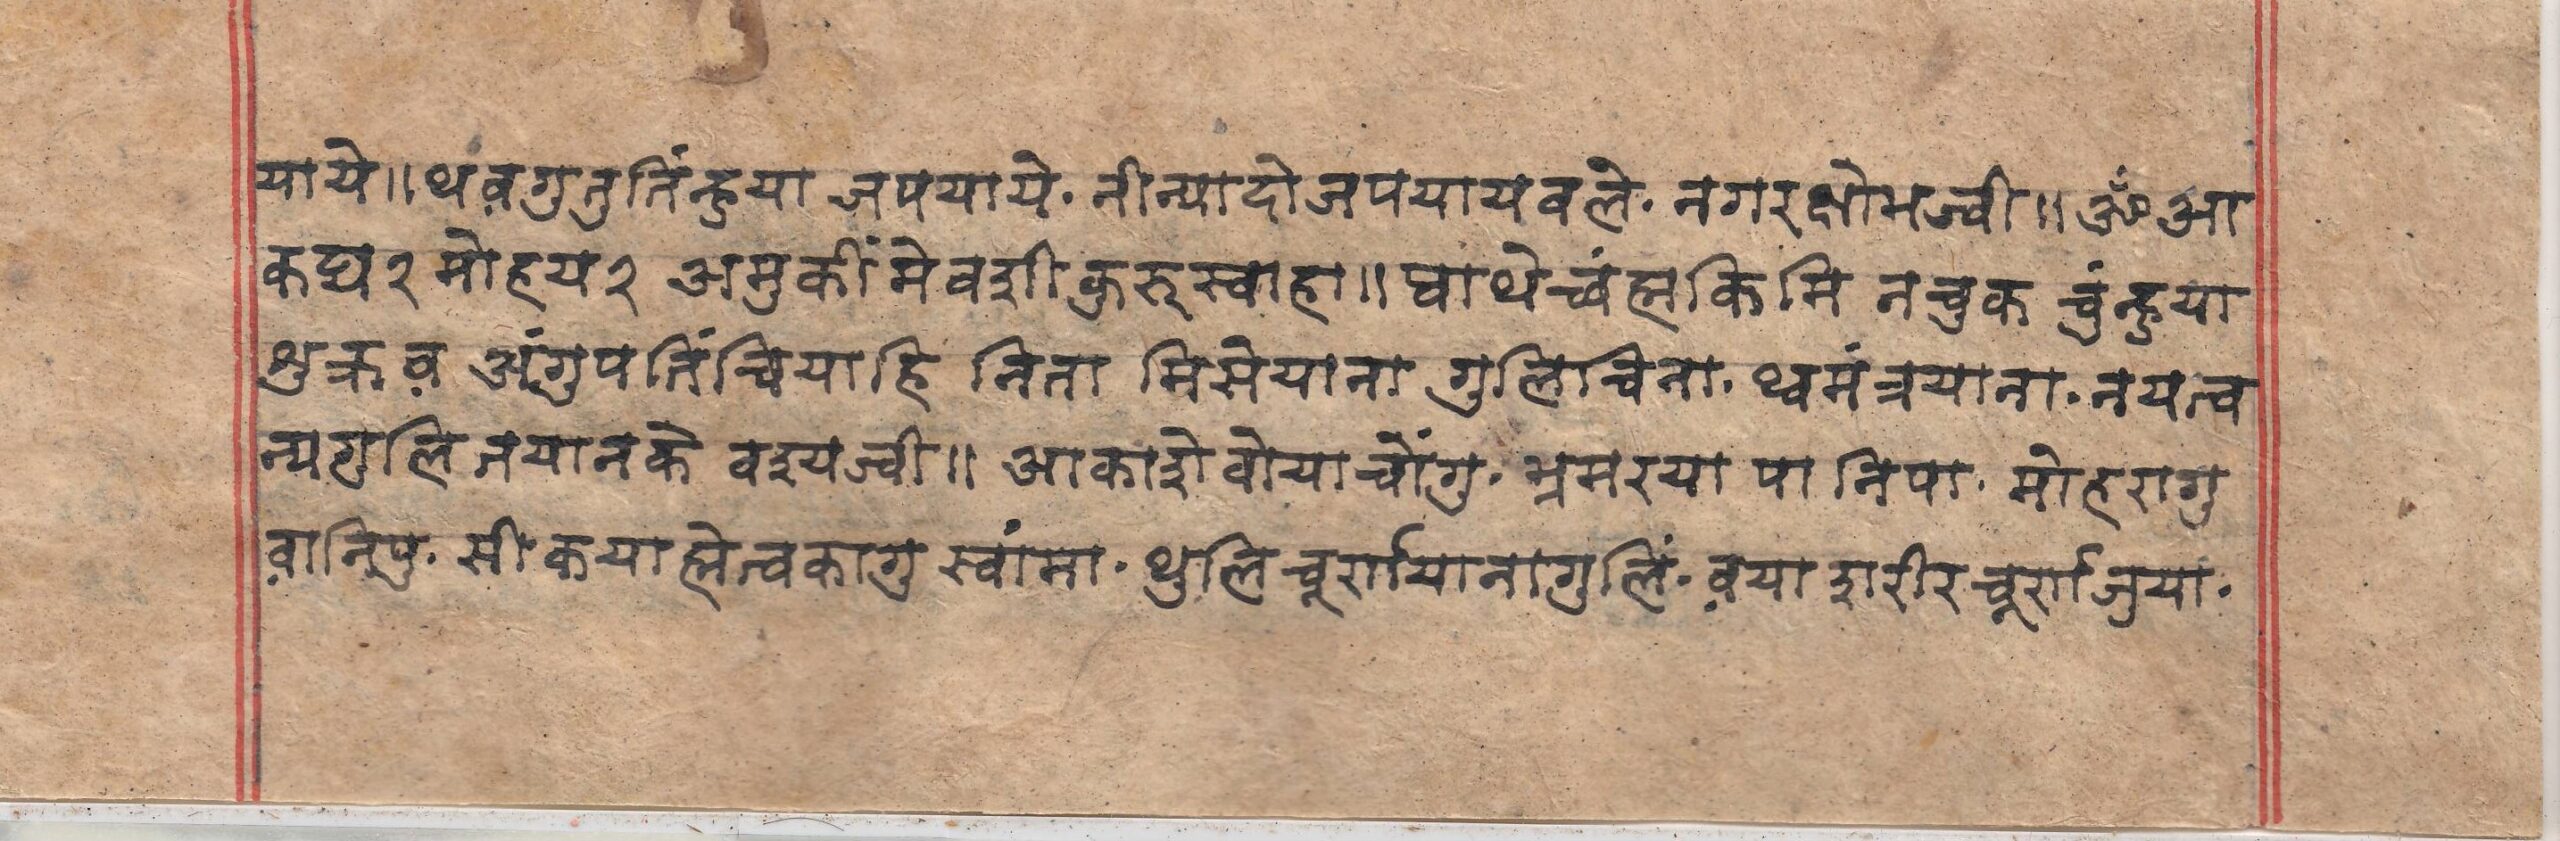 याये॥थव़गुतुतिंन्हुया जपयाये· नीन्यादो जपयायवले· नगरक्षोभज्वी॥ ॐ आ
कर्षय२ मोहय२ अमुकीं मे वशी कुरू स्वाहा॥ घाथेच्वंह्म किमि नचुक चुंन्हुया
थुक्रव़ अंगुपतिंच्विया हि निता मिसेयाना गुलिचिना· थ्वमंत्रयाना· नयत्व
न्यगुलि नयानके वश्यज्वी॥ आकाशे वोयाचोंगु· भ्रमरया पा निपा· मोहरागु
व़ानिपु· सीकयाह्मेत्वकागु स्वांमा· थुलि चूर्णयाना गुलिं· व़या शरीर चूर्ण जुया·